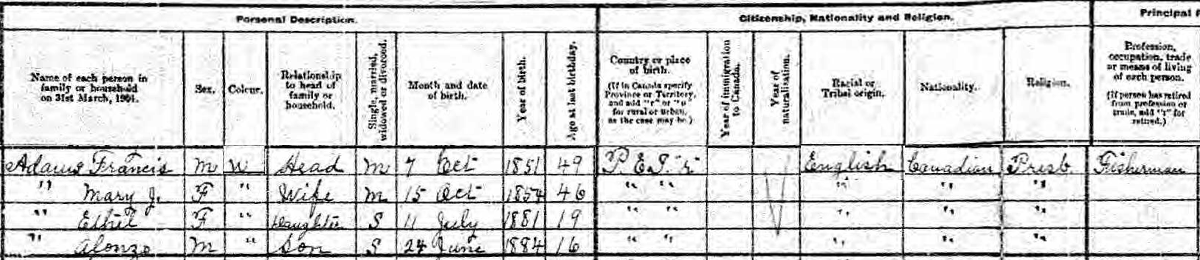 Personal Description. Citizenship, Nationality and Religion. Principal
Name of each person in family or household on 31st March, 1901.
Sex.
Colour.
Relationship to head of family or household.
Single, married, widowed or divorced.
Month and date of birth.
Year of birth.
Age at last birthday.
Country or place of birth.
(If in Canada specify Province or Territory, and add "r" or "u" for rural or urban, as the case may be.)
Year of immigration to Canada.
Year of naturalization.
Racial or Tribal origin.
Nationality.
Religion.
Profession, occupation, trade or means of living of each person.
(If person has retired from profession or trade, add "r" for retired.)
Adams Francis M W Head M 7 Oct 1851 49 P.E.I. r English Canadian Presb Fisherman
" Mary J. F " Wife M 15 Oct 1854 46 " " " " "
" Ethel F " Daughter S 11 July 1881 19 " " " " "
" Alonzo M " Son S 24 June 1884 16 " " " " "